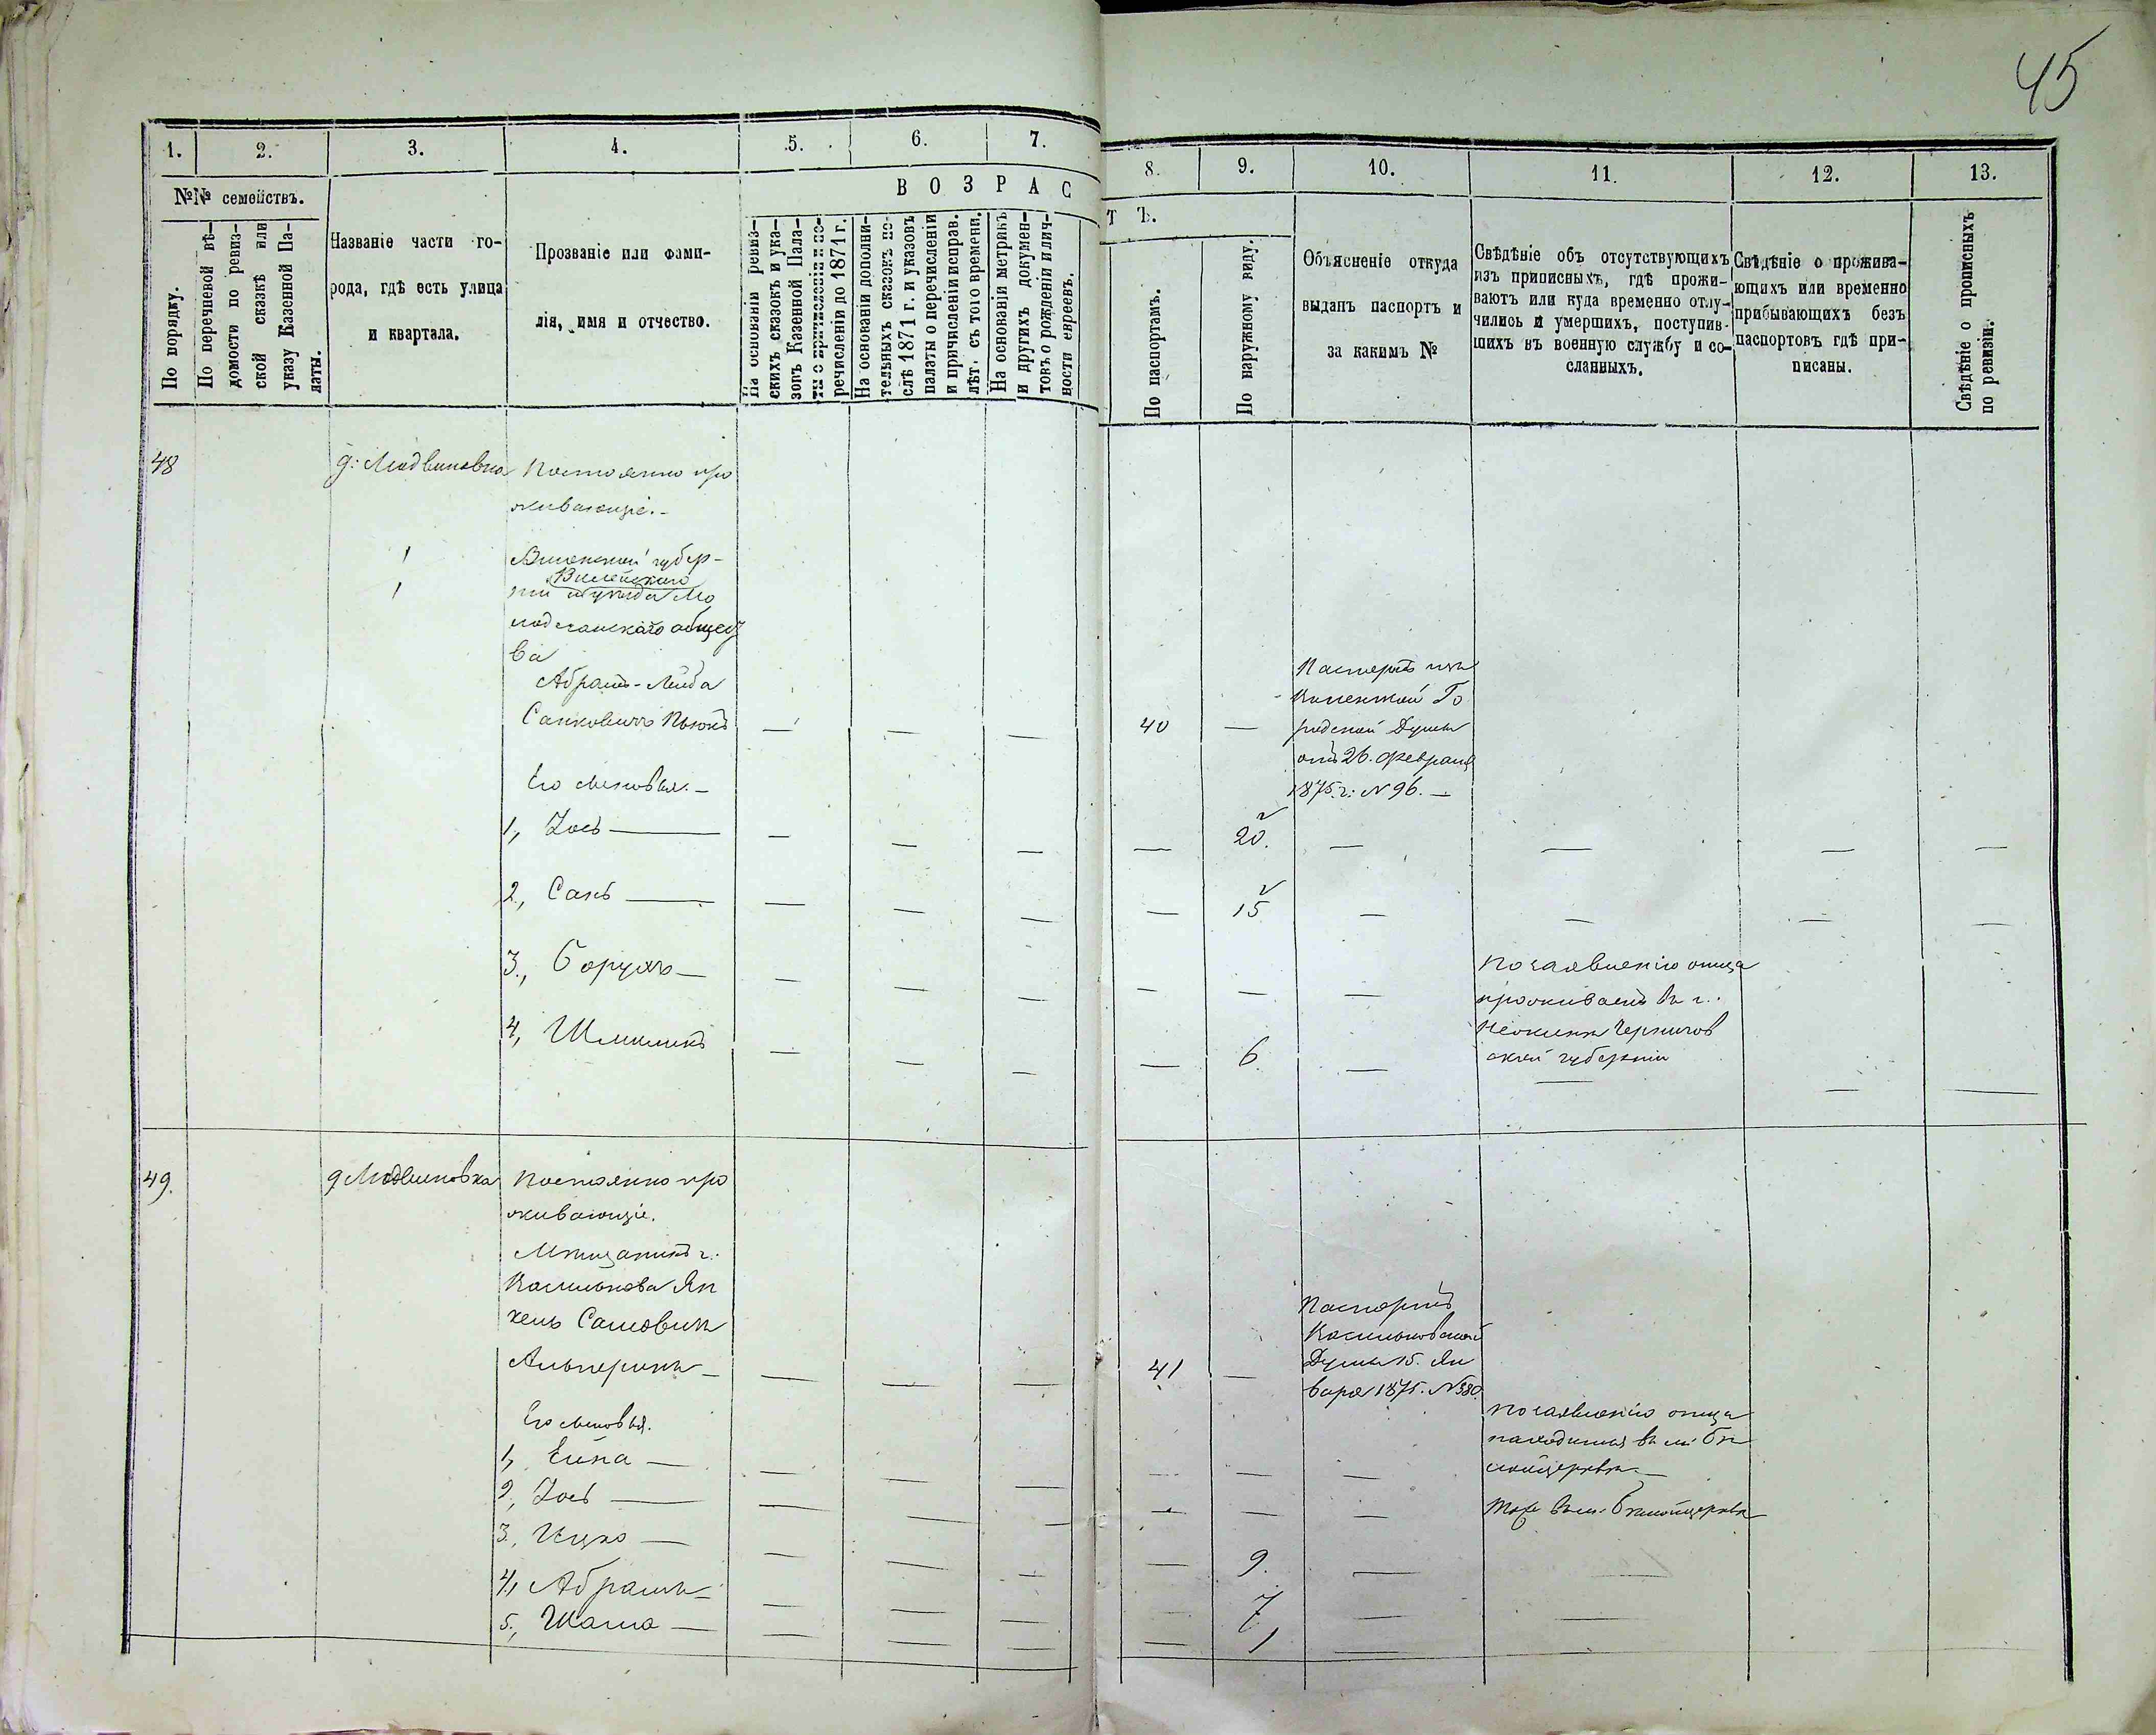 45
1.
2.
3.
4.
5.
6.
7.
8.
9.
10.
11.
12.
13.
№№ семействъ.
По порядку.
По перечневой вѣ-
домости по ревиз-
ской сказкѣ или
указу Казенной Па-
латы.
Названіе части го-
рода, гдѣ есть улица
и квартала.
Прозваніе или фами-
лія, имя и отчество.
ВОЗРАС
ТЪ.
На основаніи ревиз-
скихъ сказокъ и ука-
зовъ Казенной Пала-
ты о причисленіи и пе-
речисленіи до 1871 г.
На основаніи дополни-
тельныхъ сказокъ по-
слѣ 1871 г. и указовъ
палаты о перечисленіи
и причисленіи исправ.
лѣт. съ того времени.
На основаніи метрикъ
и другихъ докумен-
товъ о рожденіи и лич-
ности евреевъ.
По паспортамъ.
По наружному виду.
Объясненіе откуда
выданъ паспортъ и
за какимъ №
Свѣдѣніе объ отсутствующихъ
изъ приписныхъ, гдѣ прожи-
ваютъ или куда временно отлу-
чились и умершихъ, поступив-
шихъ въ военную службу и со-
сланныхъ.
Свѣдѣніе о прожива-
ющихъ или временно
прибывающихъ безъ
паспортовъ гдѣ при-
писаны.
Свѣдѣніе о прописныхъ
по ревизіи.
48
д: Людвиновка
Постоянно про
живающіе.-
Виленской губер-
Вилейскаго
ніи уѣзда Мо
лодечанскаго общест
ва
Абрамъ-Лейба
Санковичъ
40
Паспортъ изъ
Го
родской Думы
отъ 26. февраля
1875 г: № 96. —
Его сыновья. —
1, Іось — 20.
2, Санъ — 15
3., Борухъ —
По заявленію отца
проживаетъ въ г.
Нежинѣ Чернигов
ской губерніи
4, Шмиликъ 6
49.
д Людвиновка
Постоянно про
живающіе.
Мѣщанинъ г.
Василькова Ян
кель
Альперинъ —
41 —
Паспортъ
Васильковской
Думы 15. Ян
варя 1875. № 380
Его сыновья.
1, Ейна —
По заявленію отца
находится въ м: Бѣ
лойцеркви. —
2, Іось —
Тоже въ м: Бѣлойцеркви
3., Ицко — 9.
4., Абрамъ — 7
5., Шама — 1